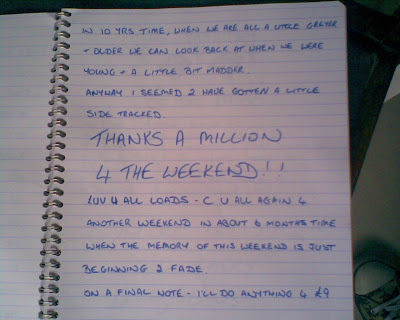 IN 10 YRS TIME, WHEN WE ARE ALL A LITTLE GREYER
+ OLDER WE CAN LOOK BACK AT WHEN WE WERE
YOUNG + A LITTLE BIT MADDER.
ANYWAY I SEEMED 2 HAVE GOTTEN A LITTLE
SIDE TRACKED.
THANKS A MILLION
4 THE WEEKEND!!
LUV U ALL LOADS - C U ALL AGAIN 4
ANOTHER WEEKEND IN ABOUT 6 MONTHS TIME
WHEN THE MEMORY OF THIS WEEKEND IS JUST
BEGINNING 2 FADE.
ON A FINAL NOTE - I'LL DO ANYTHING 4 £9